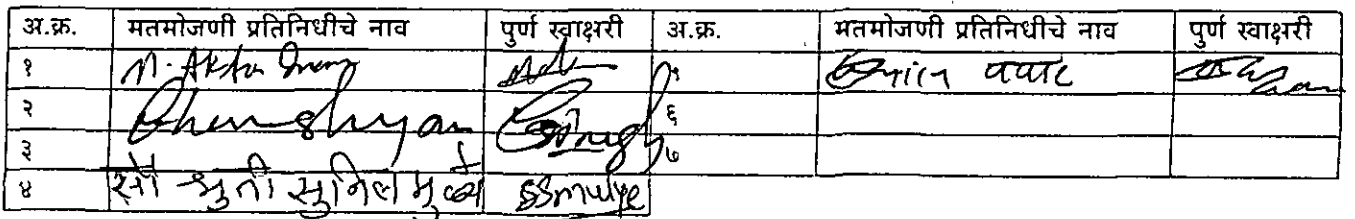 अ.क्र. मतमोजणी प्रतिनिधीचे नाव पुर्ण स्वाक्षरी अ.क्र. मतमोजणी प्रतिनिधीचे नाव पुर्ण स्वाक्षरी
१ पवार
२ Ghanshyam Singh ६
३ ७
४ सौ श्रुती सुनिल मुळ्ये SSMulye